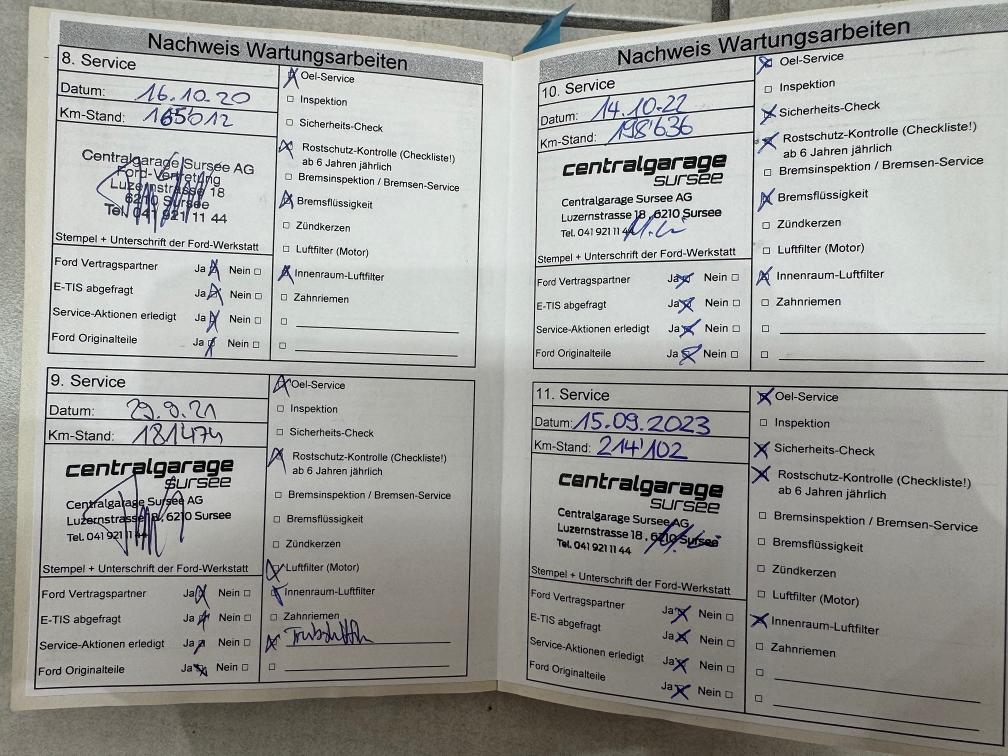 Nachweis Wartungsarbeiten
8. Service
Datum: 16.10.20
Km-Stand: 165'012
Centralgarage Sursee AG
Ford-Vertretung
Luzernstrasse 18
6210 Sursee
Tel. 041 921 11 44
Stempel + Unterschrift der Ford-Werkstatt
Ford Vertragspartner Ja Nein
E-TIS abgefragt Ja Nein
Service-Aktionen erledigt Ja Nein
Ford Originalteile Ja Nein
Oel-Service
Inspektion
Sicherheits-Check
Rostschutz-Kontrolle (Checkliste!)
ab 6 Jahren jährlich
Bremsinspektion / Bremsen-Service
Bremsflüssigkeit
Zündkerzen
Luftfilter (Motor)
Innenraum-Luftfilter
Zahnriemen
9. Service
Datum: 29.9.21
Km-Stand: 181474
centralgarage
sursee
Centralgarage Sursee AG
Luzernstrasse 18, 6210 Sursee
Tel. 041 921 11 44
Stempel + Unterschrift der Ford-Werkstatt
Ford Vertragspartner Ja Nein
E-TIS abgefragt Ja Nein
Service-Aktionen erledigt Ja Nein
Ford Originalteile Ja Nein
Oel-Service
Inspektion
Sicherheits-Check
Rostschutz-Kontrolle (Checkliste!)
ab 6 Jahren jährlich
Bremsinspektion / Bremsen-Service
Bremsflüssigkeit
Zündkerzen
Luftfilter (Motor)
Innenraum-Luftfilter
Zahnriemen
Nachweis Wartungsarbeiten
10. Service
Datum: 14.10.22
Km-Stand: 198'636
centralgarage
sursee
Centralgarage Sursee AG
Luzernstrasse 18, 6210 Sursee
Tel. 041 921 11 44
Stempel + Unterschrift der Ford-Werkstatt
Ford Vertragspartner Ja Nein
E-TIS abgefragt Ja Nein
Service-Aktionen erledigt Ja Nein
Ford Originalteile Ja Nein
Oel-Service
Inspektion
Sicherheits-Check
Rostschutz-Kontrolle (Checkliste!)
ab 6 Jahren jährlich
Bremsinspektion / Bremsen-Service
Bremsflüssigkeit
Zündkerzen
Luftfilter (Motor)
Innenraum-Luftfilter
Zahnriemen
11. Service
Datum: 15.09.2023
Km-Stand: 214'102
centralgarage
sursee
Centralgarage Sursee AG
Luzernstrasse 18, 6210 Sursee
Tel. 041 921 11 44
Stempel + Unterschrift der Ford-Werkstatt
Ford Vertragspartner Ja Nein
E-TIS abgefragt Ja Nein
Service-Aktionen erledigt Ja Nein
Ford Originalteile Ja Nein
Oel-Service
Inspektion
Sicherheits-Check
Rostschutz-Kontrolle (Checkliste!)
ab 6 Jahren jährlich
Bremsinspektion / Bremsen-Service
Bremsflüssigkeit
Zündkerzen
Luftfilter (Motor)
Innenraum-Luftfilter
Zahnriemen